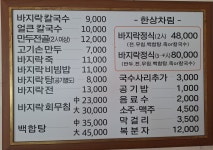 바지락칼국수 9,000
얼큰칼국수 10,000
만두전골(2인이상) 12,000
고기손만두 7,000
바지락죽 11,000
바지락비빔밥 11,000
바지락탕(공기별도) 11,000
바지락전 11,000
바지락회무침 中 23,000
大 30,000
백합탕 中 35,000
大 45,000
-한상차림-
바지락정식(2人) 48,000
바지락정식(4人) 80,000
국수사리추가 3,000
공기밥 1,000
음료수 2,000
소주·맥주 4,000
막걸리 3,500
복분자 12,000